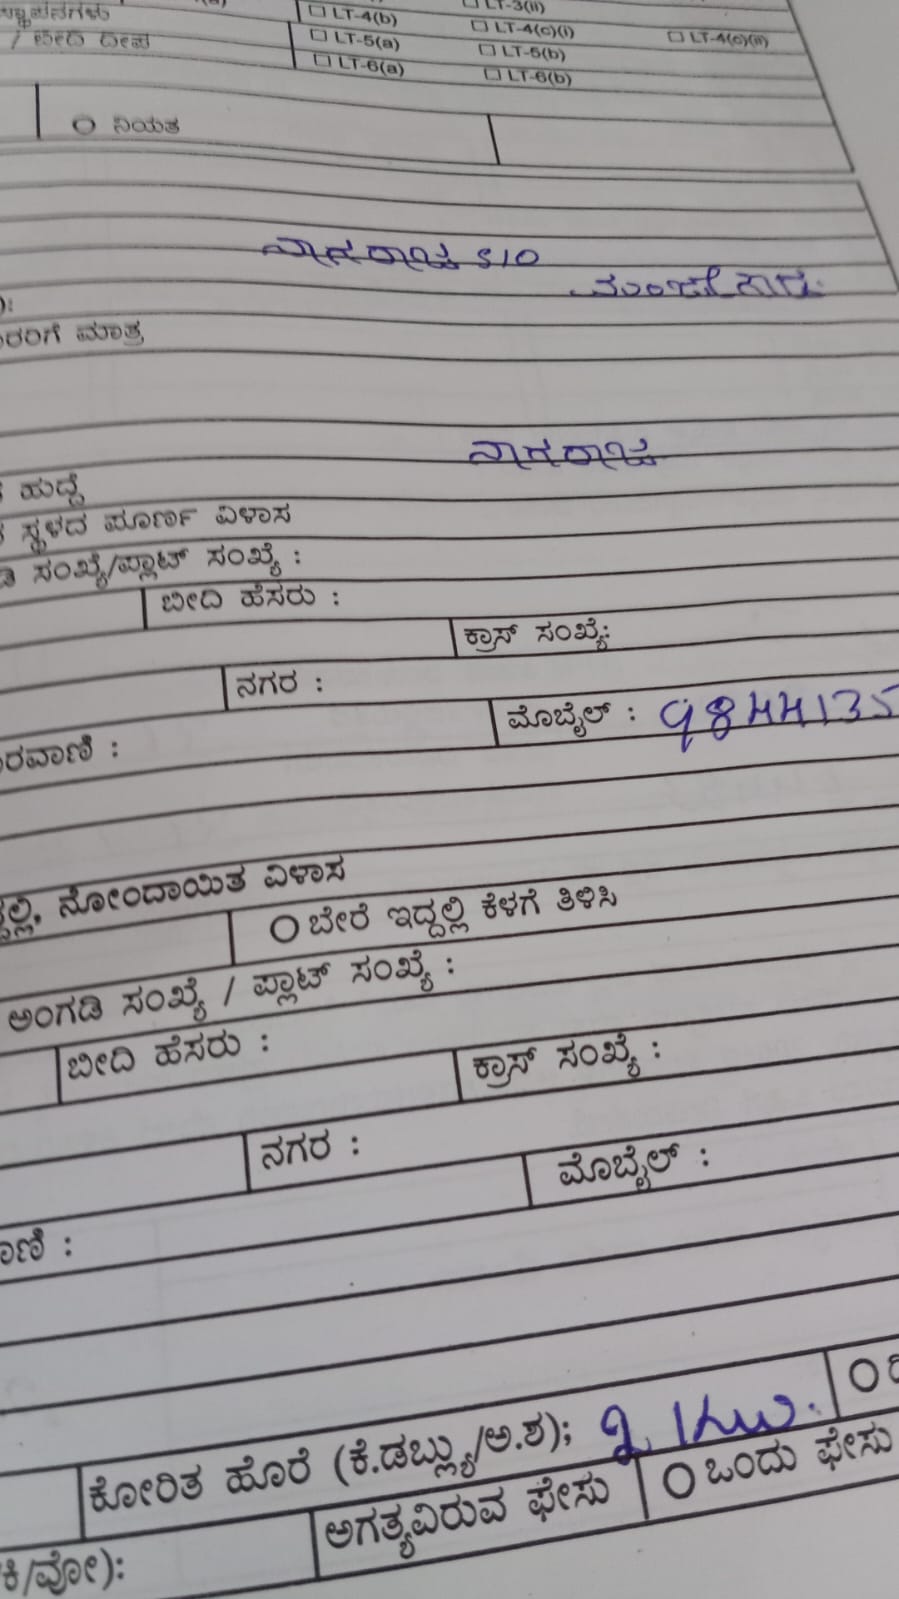 LT-3(ii)
ಸ್ಥಾಪನಗಳು LT-4(b) LT-4(c)(i) LT-4(c)(ii)
/ ಬೀದಿ ದೀಪ LT-5(a) LT-5(b)
LT-6(a) LT-6(b)
ನಿಯತ
ನಾಗರಾಜ S/O
ಮಾತ್ರ
ನಾಗರಾಜ
ಹುದ್ದೆ
ಸ್ಥಳದ ಪೂರ್ಣ ವಿಳಾಸ
ಸಂಖ್ಯೆ/ಪ್ಲಾಟ್ ಸಂಖ್ಯೆ :
ಬೀದಿ ಹೆಸರು :
ಕ್ರಾಸ್ ಸಂಖ್ಯೆ:
ನಗರ :
ಮೊಬೈಲ್ : 9844135
ರವಾಣಿ :
ನೋಂದಾಯಿತ ವಿಳಾಸ
ಬೇರೆ ಇದ್ದಲ್ಲಿ ಕೆಳಗೆ ತಿಳಿಸಿ
ಅಂಗಡಿ ಸಂಖ್ಯೆ / ಪ್ಲಾಟ್ ಸಂಖ್ಯೆ :
ಬೀದಿ ಹೆಸರು :
ಕ್ರಾಸ್ ಸಂಖ್ಯೆ :
ನಗರ :
ಮೊಬೈಲ್ :
ಾಣಿ :
ಕೋರಿತ ಹೊರೆ (ಕೆ.ಡಬ್ಲ್ಯು/ಅ.ಶ); 2 KW.
ಅಗತ್ಯವಿರುವ ಫೇಸು ಒಂದು ಫೇಸು
ಕಿ/ವೋ):